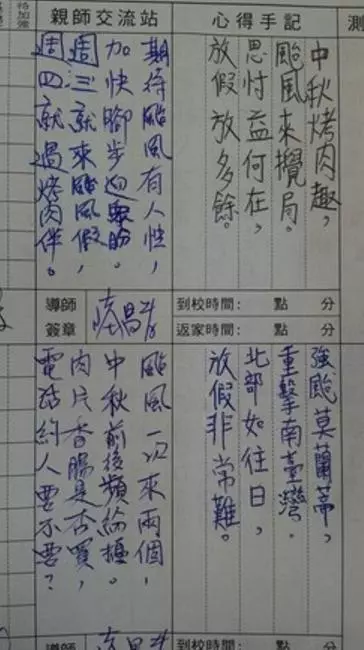 心得手記
中秋烤肉趣，
颱風來攪局。
思忖益何在，
放假放多餘。
親師交流站
期待颱風有人性，
加快腳步迎眾盼。
週三就來颱風假，
週四就過烤肉伴。
到校時間： 點 分
返家時間： 點 分
導師
簽章
強颱莫蘭蒂，
重擊南臺灣。
北部如往日，
放假非常難。
颱風一次來兩個，
中秋前後頻擾。
肉片香腸是否買，
電話約人要不要？
導師